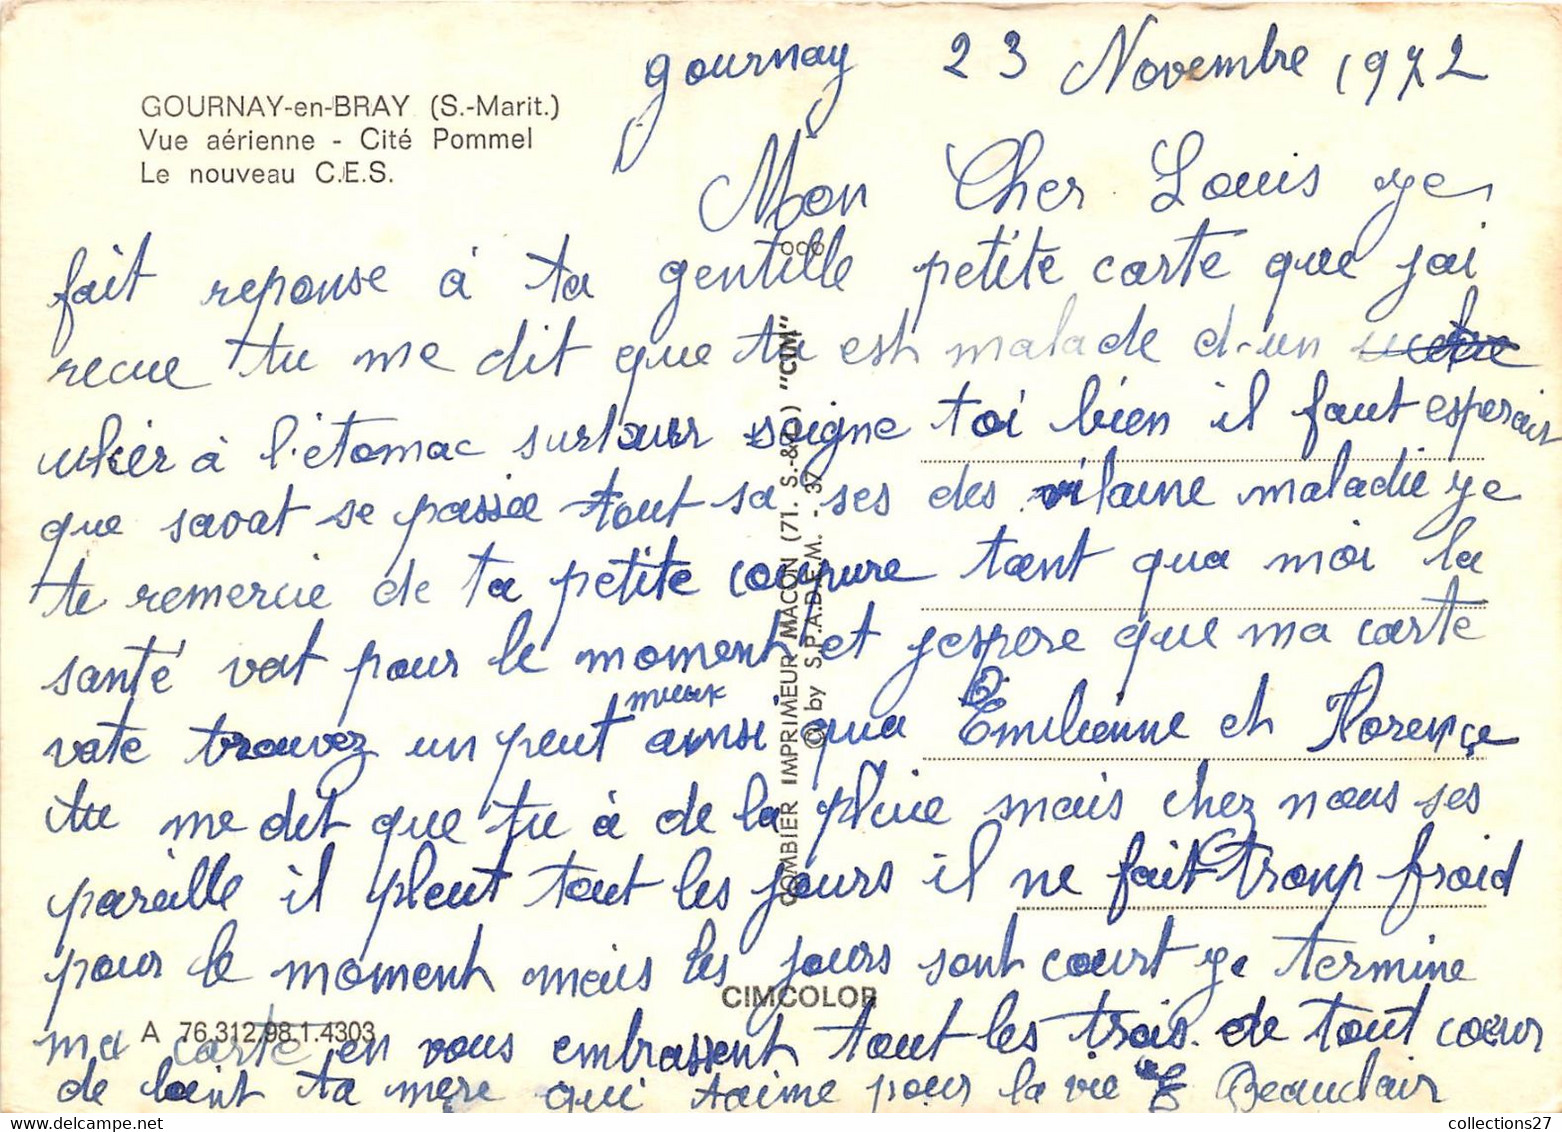 gournay 23 Novembre 1972
GOURNAY-en-BRAY (S.-Marit.)
Vue aérienne - Cité Pommel
Le nouveau C.E.S.
Mon Cher Louis ye
fait reponse à ta gentille petite carte que jai
recue tu me dit que tu est malade d'un
ulcier à l'étomac surtour soigne toi bien il faut esperair
que savat se passée tout sa ses des vilaine maladie ye
te remercie de ta petite coupure tant qua moi la
santé vat pour le moment et jespere que ma carte
vate trouvez un peut mieux ainsi qua Emilienne et Florençe
tu me dit que tu à de la pluie mais chez nous ses
pareille il pleut tout les jours il ne fait troup froid
pour le moment mais les jours sont court ye termine
ma carte en vous embrassent tout les trois de tout cœur
de loint ta mere qui taime pour la vie E Beauclair
COMBIER IMPRIMEUR MACON (71. S.-&-L.) "CIM"
© by S.P.A.D.E.M. - 37
CIMCOLOR
A 76.312.98.1.4303
collections27